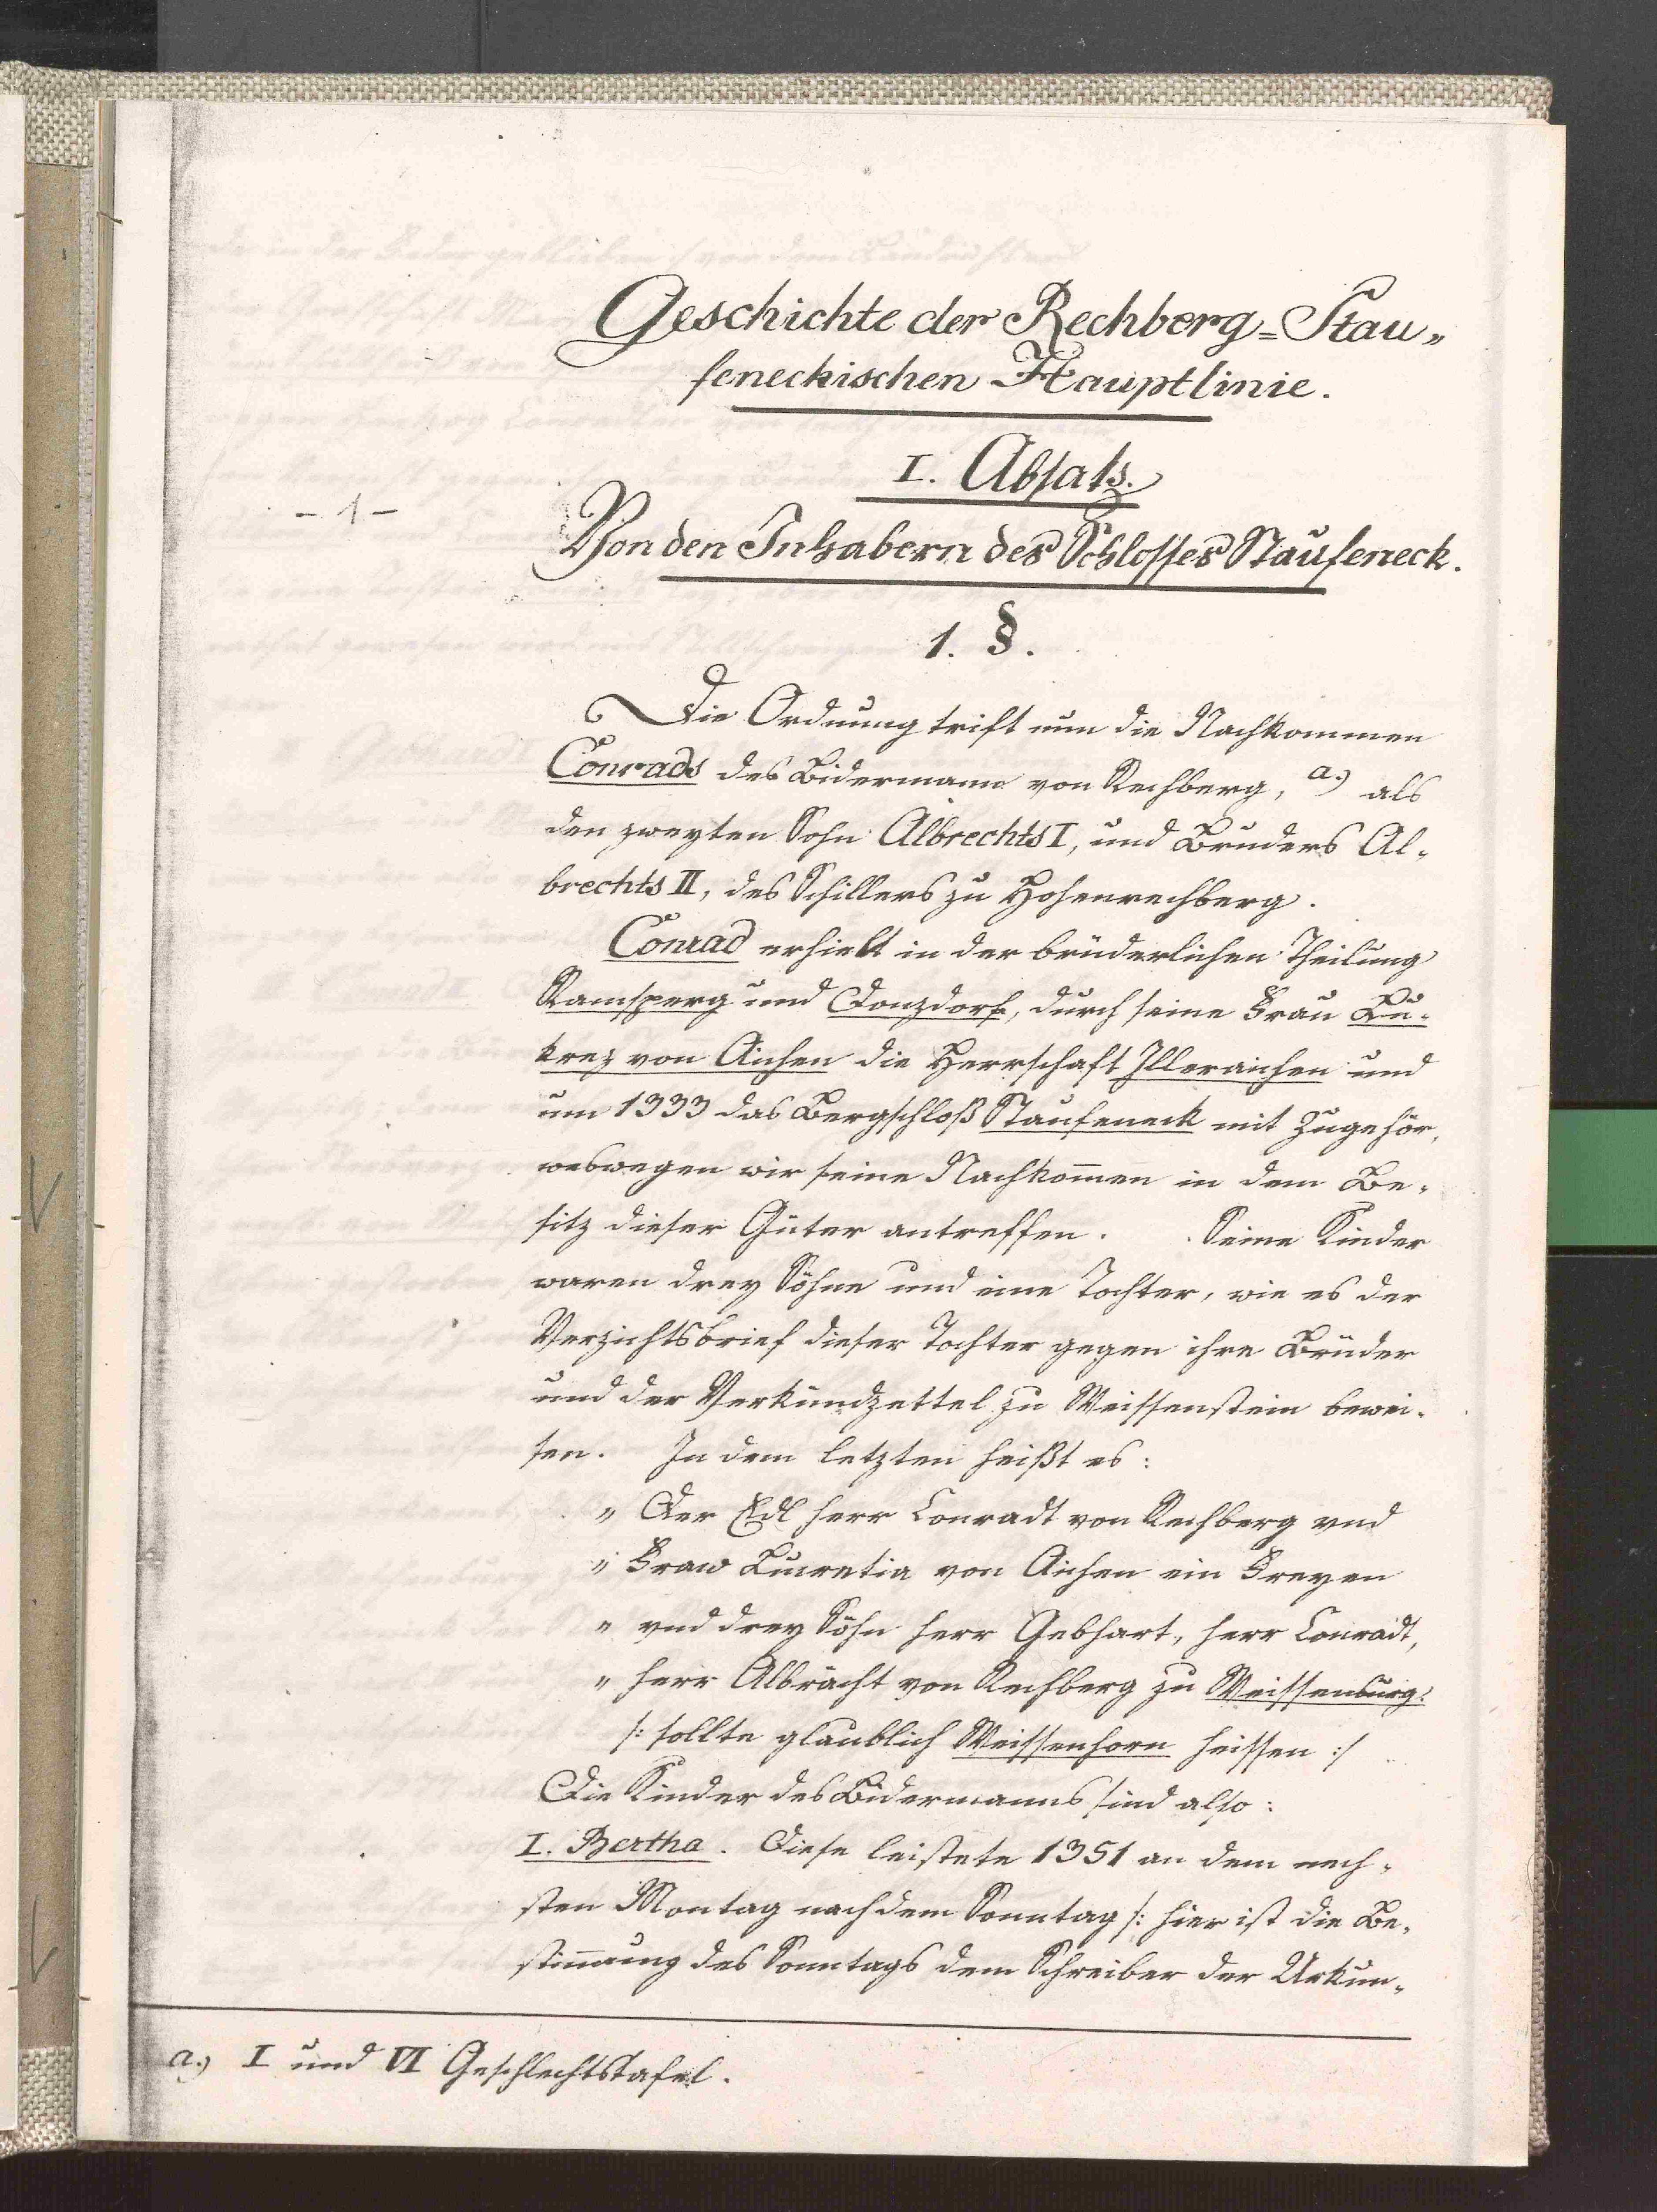 Geschichte der Rechberg=Stau„
feneckischen Hauptlinie.
I. Absatz.
- 1 -
Von den Inhabern des Schlosses Staufeneck.
1. §.
Die Ordnung trift nun die Nachkommen
Conrads des Bidermann von Rechberg, a.) als
den zweyten Sohn Albrechts I, und Bruders Al-
brechts II, des Schillers zu Hohenrechberg.
Conrad erhielt in der brüderlichen Theilung
Ramsperg und Donzdorf, durch seine Frau Lu-
krez von Aichen die Herrschaft Illeraichen und
um 1333 das Bergschloß Staufeneck mit Zugehör,
weswegen wir seine Nachkom̄en in dem Be-
sitz dieser Güter antreffen. Seine Kinder
waren drey Söhne und eine Tochter, wie es der
Verzichtsbrief dieser Tochter gegen ihre Brüder
und der Verkündzettel zu Weissenstein bewei-
sen. In dem letzten heißt es:
„ Der Edl herr Conradt von Rechberg vnd
„ Fraw Lucretia von Aichen ein Freyen
„ vnd drey Söhn herr Gebhart, herr Conradt,
„ herr Albrächt von Rechberg zu Weissenburg.
/: sollte glaublich Weissenhorn heissen :/
Die Kinder des Bidermanns sind also:
I. Bertha. Diese leistete 1351 an dem nech-
sten Montag nach dem Sonntag /: hier ist die Be-
stim̄ung des Sonntags dem Schreiber der Urkun-
a.) I und VI Geschlechtstafel.